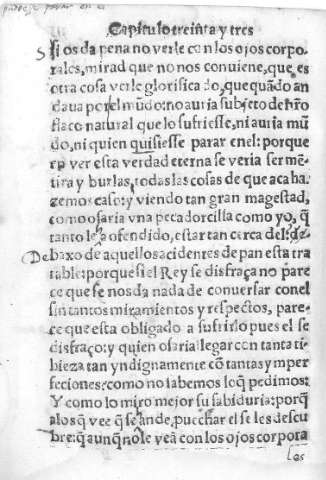 Capitulo treinta y tres
Si os da pena no verle con los ojos corpo-
rales, mirad que no nos conuiene, que es
otra cosa verle glorificado, que quãdo an
daua por el mũdo: no auria subjeto de nr̃o
flaco natural que lo sufriesse, ni auria mũ
do, ni quien quisiesse parar enel: porque
en ver esta verdad eterna se veria ser mẽ-
tira y burlas, todas las cosas de que aca ha-
zemos caso: y viendo tan gran magestad,
como osaria vna pecadorcilla como yo, q̃
tanto le ha ofendido, estar tan cerca del: de-
Debaxo de aquellos accidentes de pan esta tra
table: porque si el Rey se disfraça no pare
ce que se nos da nada de conuersar conel
sin tantos miramientos y respectos, pare-
ce que esta obligado a sufrirlo pues el se
disfraço: y quien osaria llegar con tanta ti-
bieza tan yndignamente cõ tantas ymper
fectiones: como no sabemos lo q̃ pedimos:
Y como lo miro mejor su sabiduria: porq̃
a los q̃ vee q̃ se hande, puechar el se les descu
bre: q̃ aunq̃ no le yeã con los ojos corpora
les